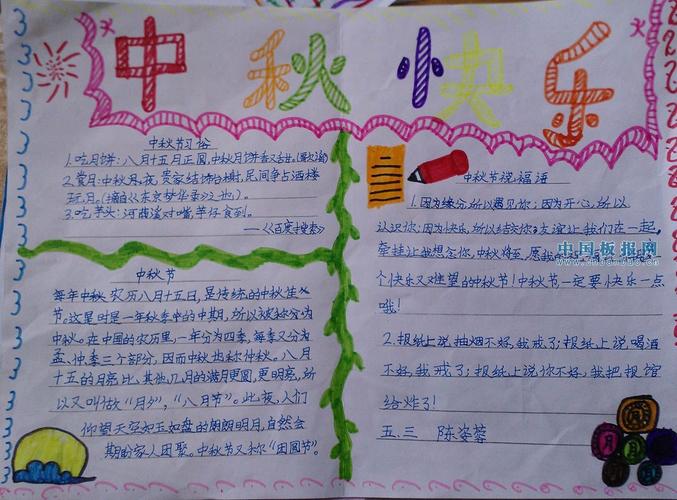 中秋快乐
中秋节习俗
1.吃月饼:八月十五月正圆,中秋月饼香又甜。(歌谣)
2.赏月:中秋月夜,贵家结饰台榭,民间争占酒楼
玩月。(摘自《东京梦华录》也)。
3.吃芋头:河芋头对嘴,芋仔食到。
——《百度搜索》
中秋节
每年中秋农历八月十五日,是传统的中秋佳
节。这是时是一年秋季中的中期,所以被称为
中秋。在中国的农历里,一年分为四季,每季又分为
孟、仲、季三个部分,因而中秋也称仲秋。八月
十五的月亮比其他几月的满月更圆,更明亮,所
以又叫做“月夕”,“八月节”。此夜,人们
仰望天空如玉如盘的朗朗明月,自然会
期盼家人团聚。中秋节又称“团圆节”。
中秋节祝福语
1.因为缘分,所以遇见你;因为开心,所以
认识你;因为快乐,所以结交你;友谊让我们在一起,
牵挂让我想念你,中秋将至,愿我
个快乐又难望的中秋节!中秋节一定要快乐一点
哦!
2.报纸上说抽烟不好,我戒了;报纸上说喝酒
不好,我戒了;报纸上说你不好,我把报馆
给炸了!
五.三 陈姿蓉
中国板报网
月
月